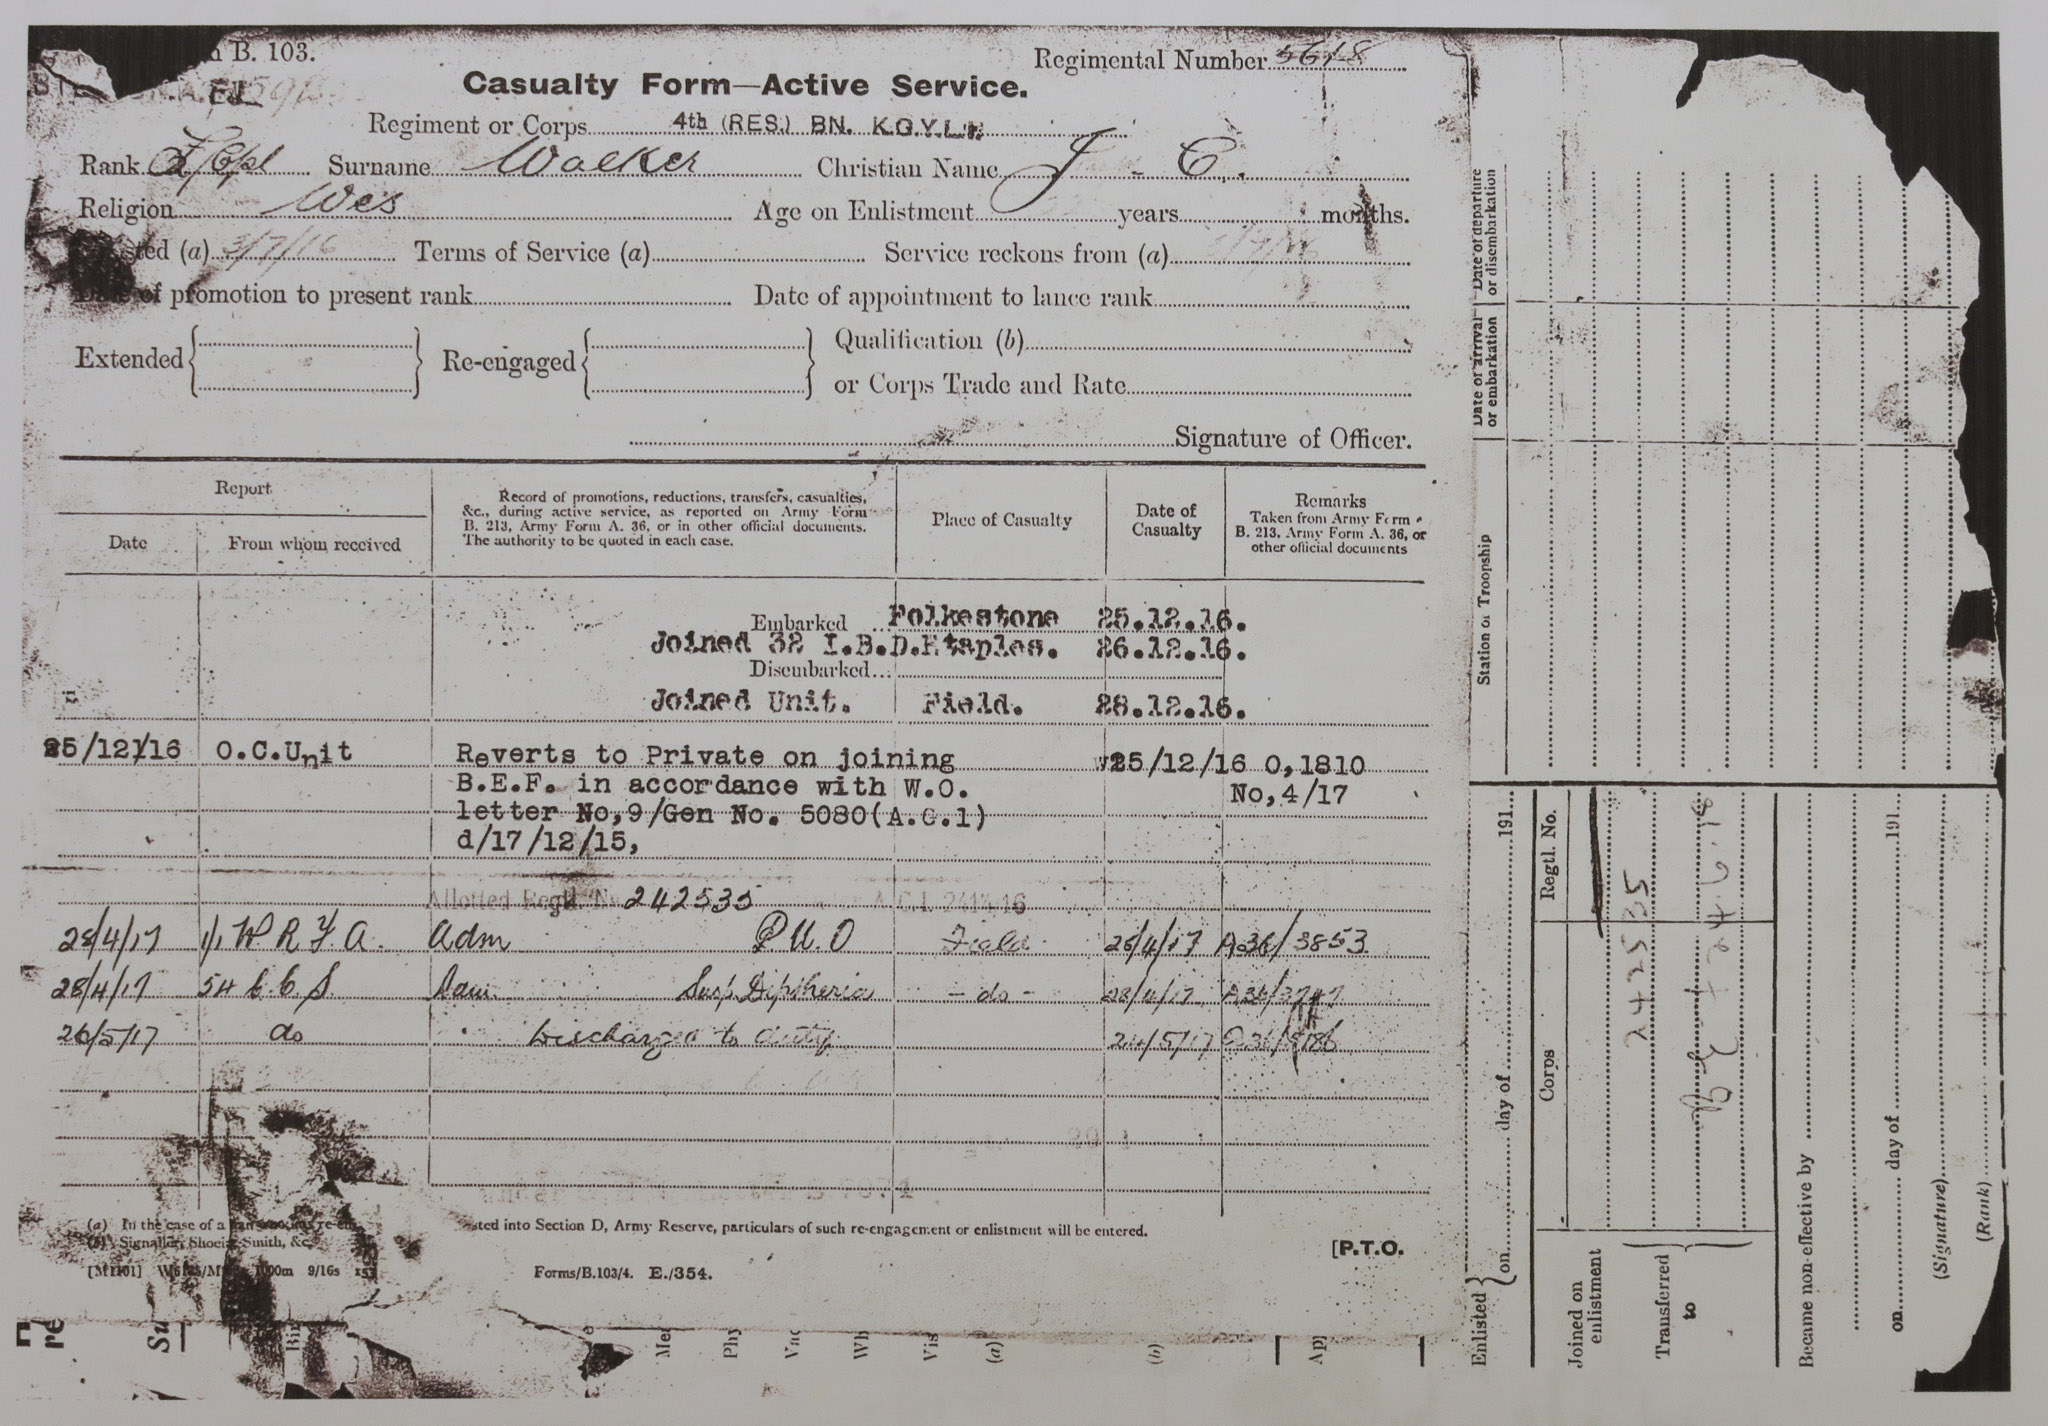 B. 103.
Regimental Number 5618
Casualty Form—Active Service.
Regiment or Corps 4th (RES.) BN. K.O.Y.L.I.
Rank L/Cpl Surname Walker Christian Name J. C.
Religion Wes Age on Enlistment years months.
(a) 3/7/16 Terms of Service (a) Service reckons from (a)
Date of promotion to present rank Date of appointment to lance rank
Extended Re-engaged Qualification (b)
or Corps Trade and Rate
Signature of Officer.
Report
Date
From whom received
Record of promotions, reductions, transfers, casualties,
&c., during active service, as reported on Army Form
B. 213, Army Form A. 36, or in other official documents.
The authority to be quoted in each case.
Place of Casualty
Date of
Casualty
Remarks
Taken from Army Form
B. 213, Army Form A. 36, or
other official documents
Embarked Folkestone 25.12.16.
Joined 32 I.B.D. Etaples. 26.12.16.
Disembarked
Joined Unit. Field. 28.12.16.
25/12/16 O.C.Unit Reverts to Private on joining 25/12/16 O,1810
B.E.F. in accordance with W.O. No,4/17
letter No,9/Gen No. 5080(A.C.1)
d/17/12/15,
Allotted Regtl. No 242535 A.C.I. 2414.16
28/4/17 1/1 W R F A. Adm P.U.O Field 28/4/17 A36/3853
28/4/17 54 C.C.S. Susp. Diptheria - do - 28/4/17
26/5/17 do Discharged to duty 24/5/17
(a) In the case of a
sted into Section D, Army Reserve, particulars of such re-engagement or enlistment will be entered.
(b) Signaller, Shoeing-Smith, &c.
[P.T.O.
1000m 9/16s
Forms/B.103/4. E./354.
Su
Me
Phy
Va
Wh
Vis
(a)
(b)
App
Date of departure
or disembarkation
Date of arrival
or embarkation
Station or Troopship
Enlisted on day of 191
Corps Regtl. No.
Joined on
enlistment
242535
Transferred
to
Became non-effective by
on day of 191
(Signature)
(Rank)